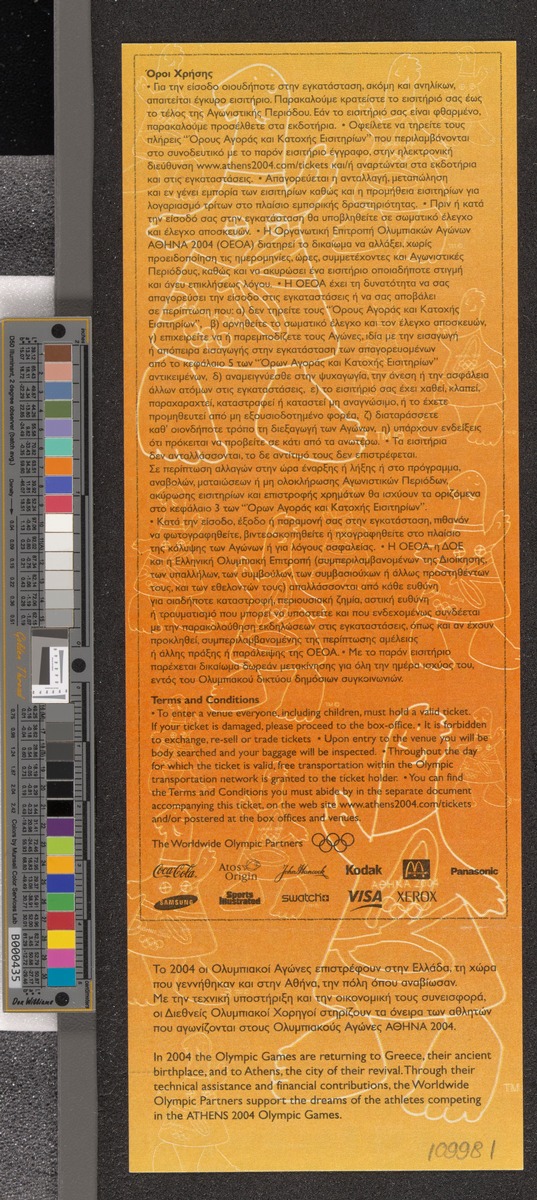 Όροι Χρήσης
• Για την είσοδο οιουδήποτε στην εγκατάσταση, ακόμη και ανηλίκων,
απαιτείται έγκυρο εισιτήριο. Παρακαλούμε κρατείστε το εισιτήριό σας έως
το τέλος της Αγωνιστικής Περιόδου. Εάν το εισιτήριό σας είναι φθαρμένο,
παρακαλούμε προσέλθετε στα εκδοτήρια. • Οφείλετε να τηρείτε τους
πλήρεις "Όρους Αγοράς και Κατοχής Εισιτηρίων" που περιλαμβάνονται
στο συνοδευτικό με το παρόν εισιτήριο έγγραφο, στην ηλεκτρονική
διεύθυνση www.athens2004.com/tickets και/ή αναρτώνται στα εκδοτήρια
και στις εγκαταστάσεις. • Απαγορεύεται η ανταλλαγή, μεταπώληση
και εν γένει εμπορία των εισιτηρίων καθώς και η προμήθεια εισιτηρίων για
λογαριασμό τρίτων στο πλαίσιο εμπορικής δραστηριότητας. • Πριν ή κατά
την είσοδό σας στην εγκατάσταση θα υποβληθείτε σε σωματικό έλεγχο
και έλεγχο αποσκευών. • Η Οργανωτική Επιτροπή Ολυμπιακών Αγώνων
ΑΘΗΝΑ 2004 (ΟΕΟΑ) διατηρεί το δικαίωμα να αλλάξει, χωρίς
προειδοποίηση τις ημερομηνίες, ώρες, συμμετέχοντες και Αγωνιστικές
Περιόδους, καθώς και να ακυρώσει ένα εισιτήριο οποιαδήποτε στιγμή
και άνευ επικλήσεως λόγου. • Η ΟΕΟΑ έχει τη δυνατότητα να σας
απαγορεύσει την είσοδο στις εγκαταστάσεις ή να σας αποβάλει
σε περίπτωση που: α) δεν τηρείτε τους "Όρους Αγοράς και Κατοχής
Εισιτηρίων", β) αρνηθείτε το σωματικό έλεγχο και τον έλεγχο αποσκευών,
γ) επιχειρείτε να παρεμποδίζετε τους Αγώνες, ιδία με την εισαγωγή
ή απόπειρα εισαγωγής στην εγκατάσταση των απαγορευμένων
από το κεφάλαιο 5 των "Όρων Αγοράς και Κατοχής Εισιτηρίων"
αντικειμένων, δ) αναμειγνύεσθε στην ψυχαγωγία, την άνεση ή την ασφάλεια
άλλων ατόμων στις εγκαταστάσεις, ε) το εισιτήριό σας έχει χαθεί, κλαπεί,
παραχαραχτεί, καταστραφεί ή καταστεί μη αναγνώσιμο, ή το έχετε
προμηθευτεί από μη εξουσιοδοτημένο φορέα, ζ) διαταράσσετε
καθ' οιονδήποτε τρόπο τη διεξαγωγή των Αγώνων, η) υπάρχουν ενδείξεις
ότι πρόκειται να προβείτε σε κάτι από τα ανωτέρω. • Τα εισιτήρια
δεν ανταλλάσσονται, το δε αντίτιμό τους δεν επιστρέφεται.
Σε περίπτωση αλλαγών στην ώρα έναρξης ή λήξης ή στο πρόγραμμα,
αναβολών, ματαιώσεων ή μη ολοκλήρωσης Αγωνιστικών Περιόδων,
ακύρωσης εισιτηρίων και επιστροφής χρημάτων θα ισχύουν τα οριζόμενα
στο κεφάλαιο 3 των "Όρων Αγοράς και Κατοχής Εισιτηρίων".
• Κατά την είσοδο, έξοδο ή παραμονή σας στην εγκατάσταση, πιθανόν
να φωτογραφηθείτε, βιντεοσκοπηθείτε ή ηχογραφηθείτε στο πλαίσιο
της κάλυψης των Αγώνων ή για λόγους ασφαλείας. • Η ΟΕΟΑ, η ΔΟΕ
και η Ελληνική Ολυμπιακή Επιτροπή (συμπεριλαμβανομένων της Διοίκησης,
των υπαλλήλων, των συμβούλων, των συμβασιούχων ή άλλως προστηθέντων
τους, και των εθελοντών τους) απαλλάσσονται από κάθε ευθύνη
για οιαδήποτε καταστροφή, περιουσιακή ζημία, αστική ευθύνη
ή τραυματισμό που μπορεί να υποστείτε και που ενδεχομένως συνδέεται
με την παρακολούθηση εκδηλώσεων στις εγκαταστάσεις, όπως και αν έχουν
προκληθεί, συμπεριλαμβανομένης της περίπτωσης αμέλειας
ή άλλης πράξης ή παράλειψης της ΟΕΟΑ. • Με το παρόν εισιτήριο
παρέχεται δικαίωμα δωρεάν μετακίνησης για όλη την ημέρα ισχύος του,
εντός του Ολυμπιακού δικτύου δημόσιων συγκοινωνιών.
Terms and Conditions
• To enter a venue everyone, including children, must hold a valid ticket.
If your ticket is damaged, please proceed to the box-office. • It is forbidden
to exchange, re-sell or trade tickets • Upon entry to the venue you will be
body searched and your baggage will be inspected. • Throughout the day
for which the ticket is valid, free transportation within the Olympic
transportation network is granted to the ticket holder. • You can find
the Terms and Conditions you must abide by in the separate document
accompanying this ticket, on the web site www.athens2004.com/tickets
and/or postered at the box offices and venues.
The Worldwide Olympic Partners
Coca-Cola Atos Origin John Hancock Kodak M Panasonic
SAMSUNG Sports Illustrated swatch VISA XEROX
Το 2004 οι Ολυμπιακοί Αγώνες επιστρέφουν στην Ελλάδα, τη χώρα
που γεννήθηκαν και στην Αθήνα, την πόλη όπου αναβίωσαν.
Με την τεχνική υποστήριξη και την οικονομική τους συνεισφορά,
οι Διεθνείς Ολυμπιακοί Χορηγοί στηρίζουν τα όνειρα των αθλητών
που αγωνίζονται στους Ολυμπιακούς Αγώνες ΑΘΗΝΑ 2004.
In 2004 the Olympic Games are returning to Greece, their ancient
birthplace, and to Athens, the city of their revival. Through their
technical assistance and financial contributions, the Worldwide
Olympic Partners support the dreams of the athletes competing
in the ATHENS 2004 Olympic Games.
TM
109981
Golden Thread
Colors by Munsell Color Services Lab
B000435
Don Williams